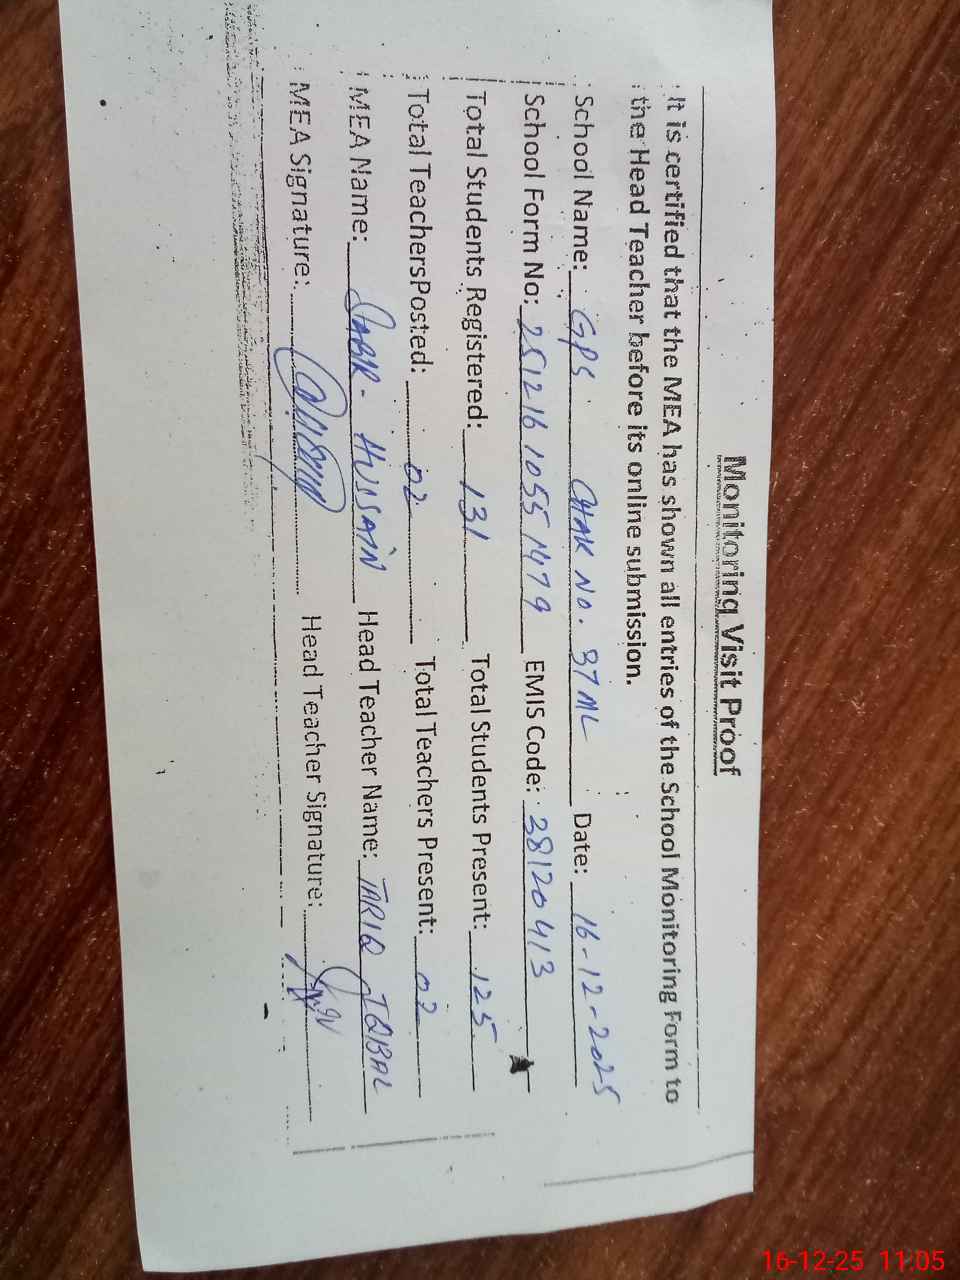 Monitoring Visit Proof
It is certified that the MEA has shown all entries of the School Monitoring Form to
the Head Teacher before its online submission.
School Name: GPS CHAK NO. 37 ML Date: 16-12-2025
School Form No: 2512161055 1479 EMIS Code: 38120413
Total Students Registered: 131 Total Students Present: 125
Total TeachersPosted: 02 Total Teachers Present: 02
MEA Name: SABIR HUSSAIN Head Teacher Name: TARIQ IQBAL
MEA Signature: Head Teacher Signature:
16-12-25 11:05